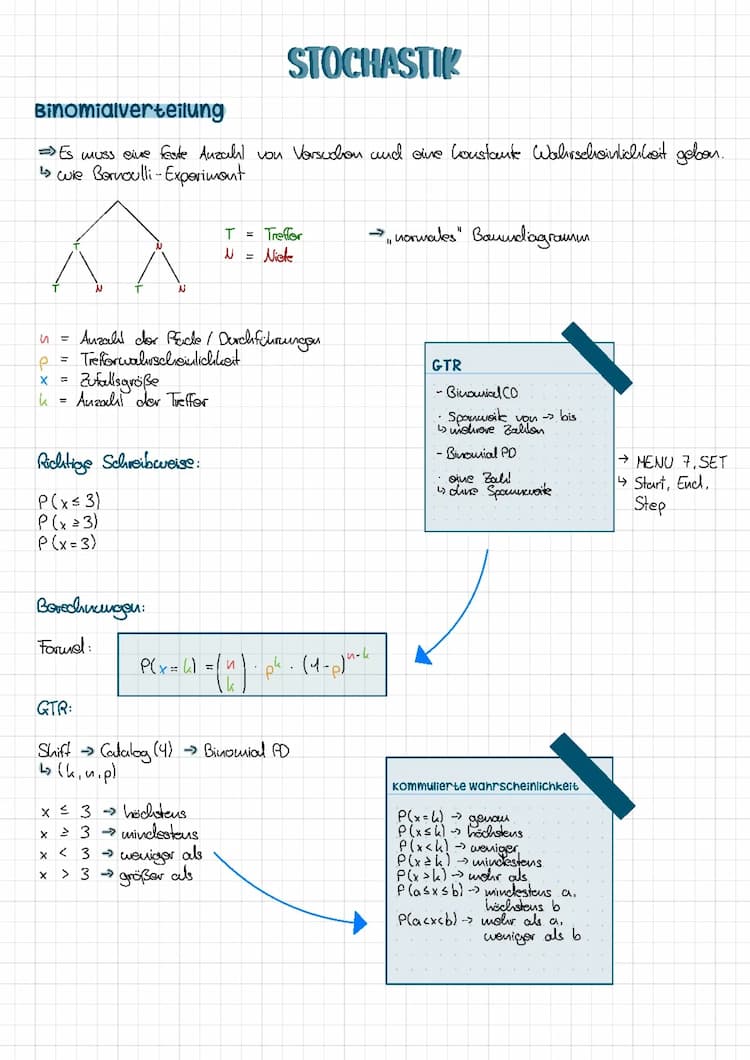 STOCHASTIK
Binomialverteilung
⇒ Es muss eine feste Anzahl von Versuchen und eine konstante Wahrscheinlichkeit geben.
↳ wie Bernoulli-Experiment
T = Treffer
N = Niete
→ „normales" Baumdiagramm
T N
T N T N
n = Anzahl der Pfade / Durchführungen
p = Trefferwahrscheinlichkeit
x = Zufallsgröße
k = Anzahl der Treffer
GTR
- Binomial CD
· Spannweite von → bis
↳ mehrere Zahlen
- Binomial PD
· eine Zahl
↳ ohne Spannweite
→ MENU 7, SET
↳ Start, End,
Step
Richtige Schreibweise:
P(x ≤ 3)
P(x ≥ 3)
P(x = 3)
Berechnungen:
Formel: P(x = k) = (n k) · p^k · (1-p)^n-k
GTR:
Shift → Catalog (4) → Binomial PD
↳ (k, n, p)
x ≤ 3 → höchstens
x ≥ 3 → mindestens
x < 3 → weniger als
x > 3 → größer als
Kommulierte Wahrscheinlichkeit
P(x=k) → genau
P(x≤k) → höchstens
P(x<k) → weniger
P(x≥k) → mindestens
P(x>k) → mehr als
P(a≤x≤b) → mindestens a,
höchstens b
P(a<x<b) → mehr als a,
weniger als b